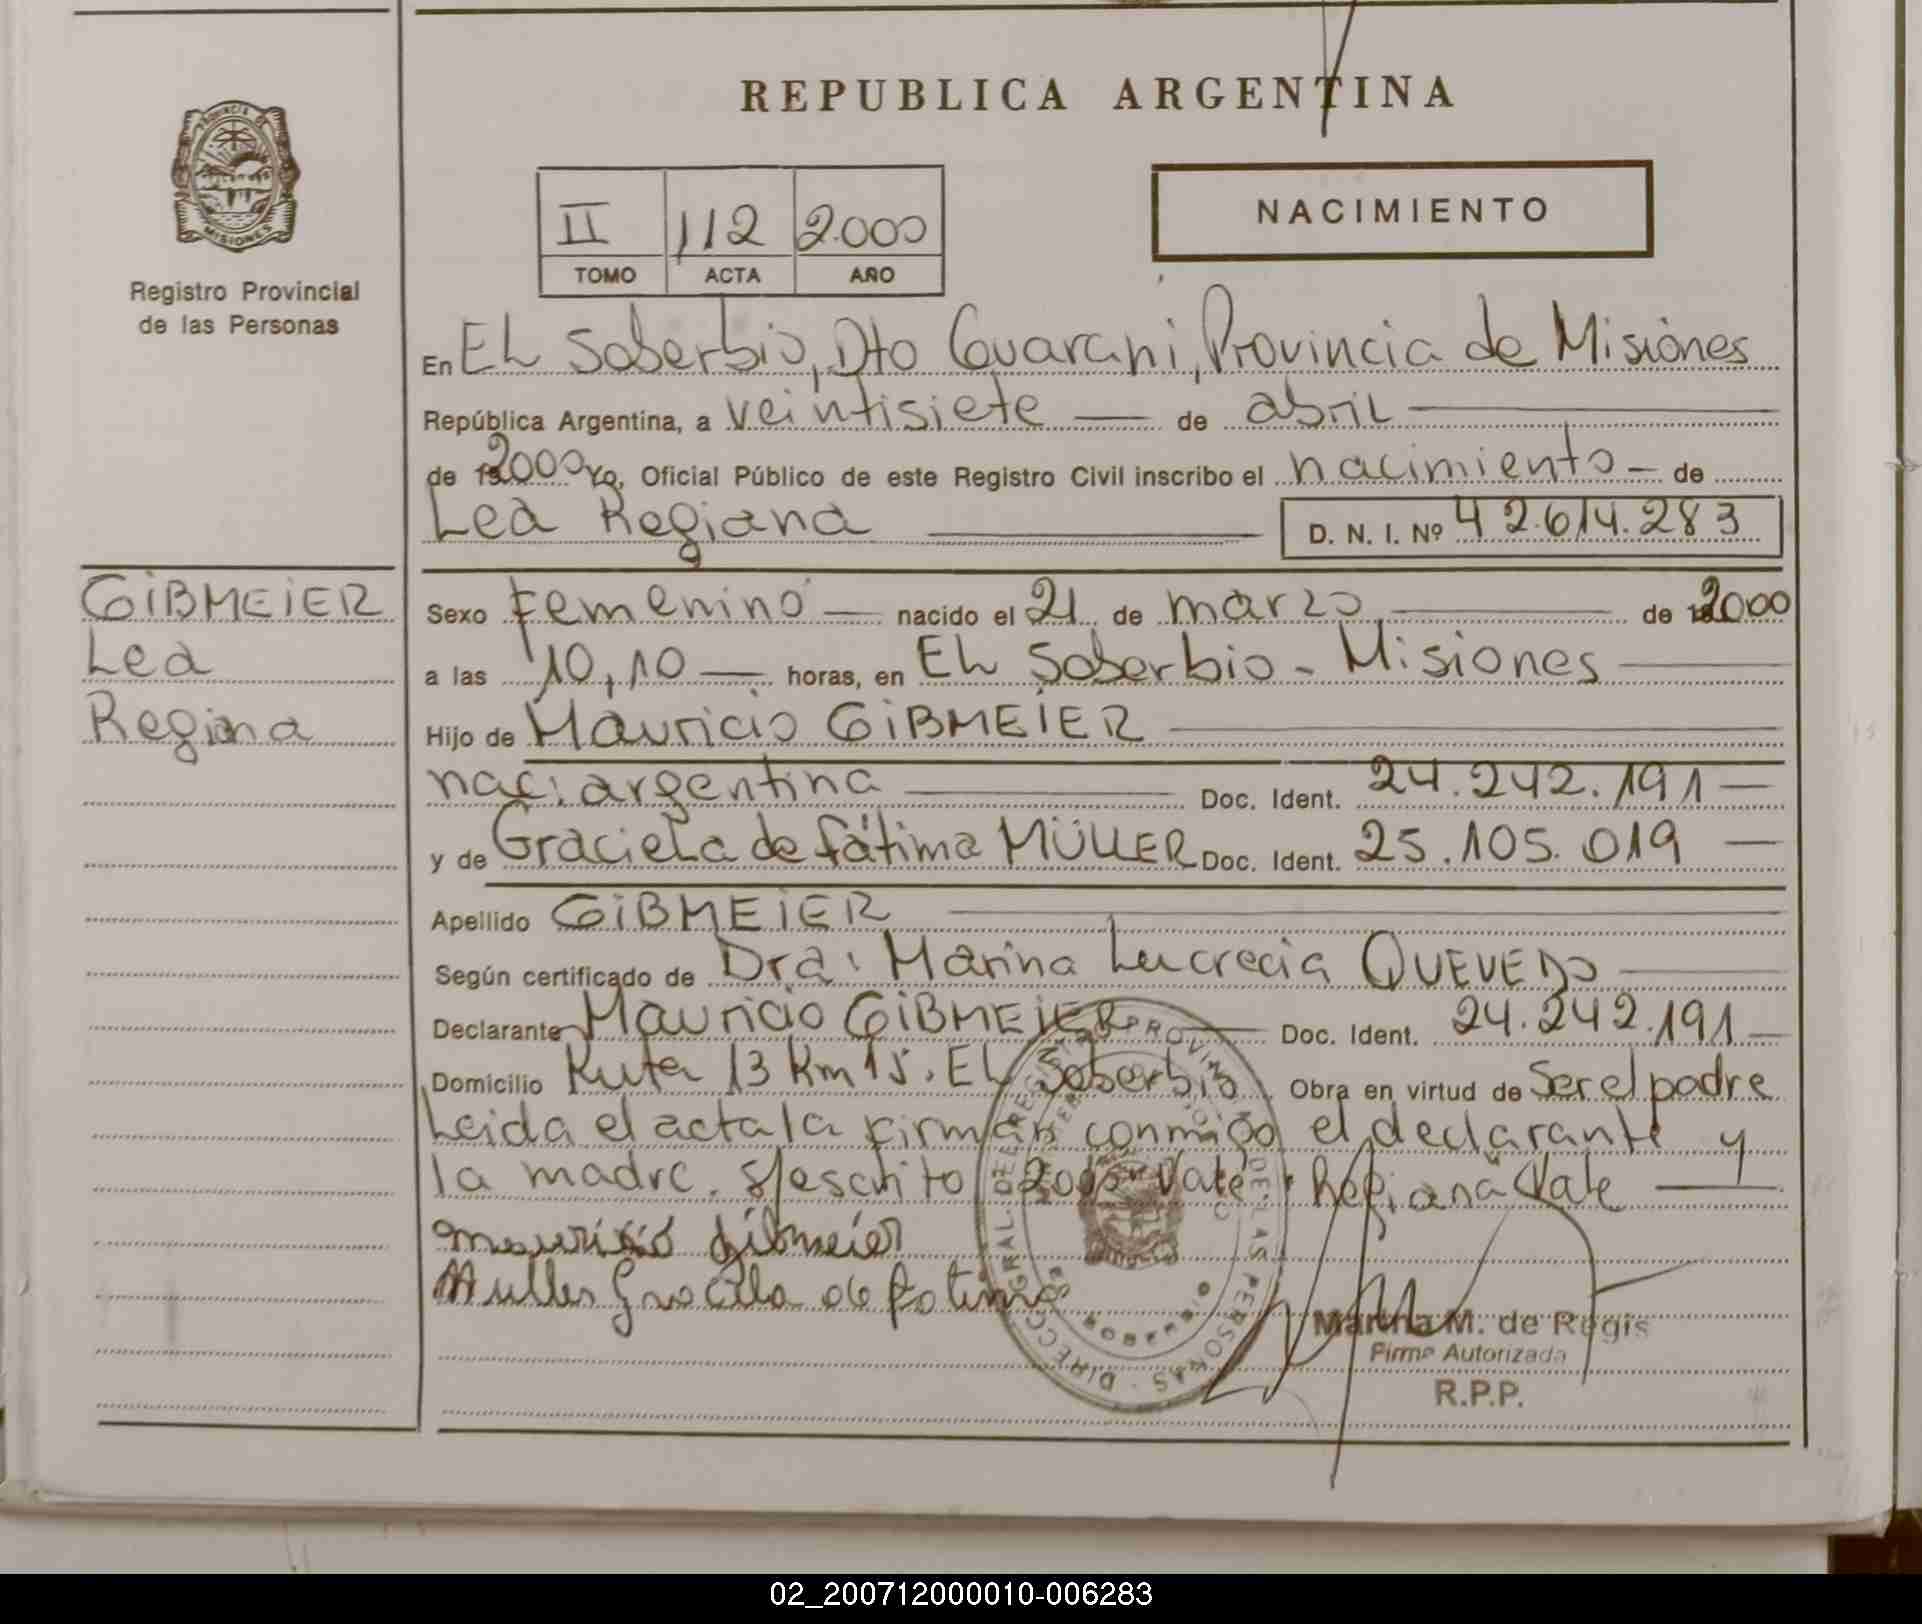 REPUBLICA ARGENTINA
PROVINCIA DE
MISIONES
Registro Provincial
de las Personas
II 112 2.000
TOMO ACTA AÑO
NACIMIENTO
En EL Soberbio, Dto Guarani, Provincia de Misiones
República Argentina, a veintisiete — de abril
de 2000 Yo, Oficial Público de este Registro Civil inscribo el nacimiento — de
Lea Regiana D. N. I. Nº 42.614.283
GiBMEiER
Lea
Regiana
Sexo Femenino — nacido el 21 de marzo de 2000
a las 10,10 — horas, en EL Soberbio - Misiones
Hijo de Mauricio GiBMEiER
nac: argentina Doc. Ident. 24.242.191 —
y de Graciela de fátima MÜLLER Doc. Ident. 25.105.019 —
Apellido GiBMEiER
Según certificado de Dra: Marina Lucrecia QUEVEDO
Declarante Mauricio GiBMEiER — Doc. Ident. 24.242.191 —
Domicilio Ruta 13 Km 15. EL Soberbio Obra en virtud de Ser el padre
Leida el acta la firman conmigo el declarante y
la madre. s/escrito "2000" Vale. "Regiana" Vale —
mauricio gibmeier
Muller Graciela de fatima
DIRECC. GRAL. DEL REGISTRO PROVINCIAL DE LAS PERSONAS
Martha M. de Regis
Firma Autorizada
R.P.P.
02_200712000010-006283